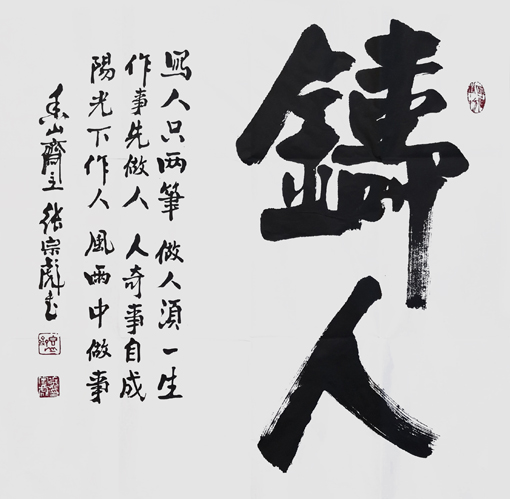 鑄人
寫人只两筆 做人須一生
作事先做人 人奇事自成
陽光下作人 風雨中做事
山齋主 張宗彪書